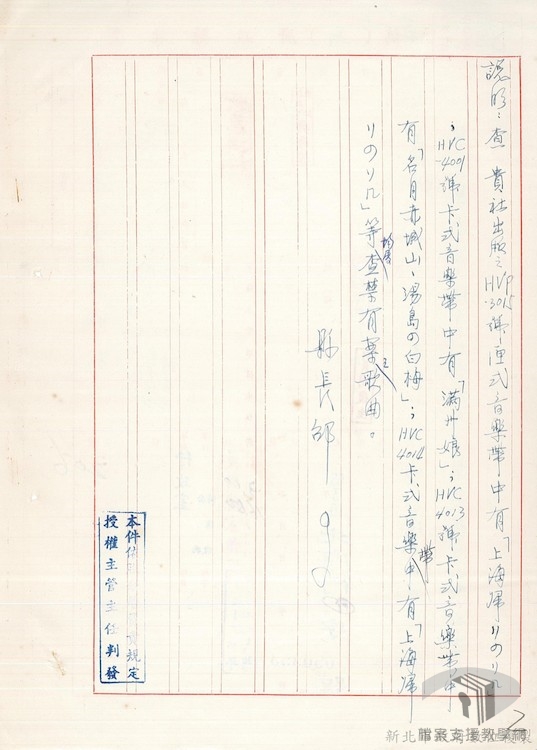 說明：查　貴社出版之HVP-3015號匣式音樂帶中有「上海帰りのリル」
；HVC-4001號卡式音樂帶中有「滿州娘」；HVC4013號卡式音樂帶中
有「名月赤城山、湯島の白梅」；HVC4014卡式音樂帶中有「上海帰
りのリル」等均屬查禁有案之歌曲。
縣長邵
本件依規定
授權主管主任判發
新北市
檔案支援教學網